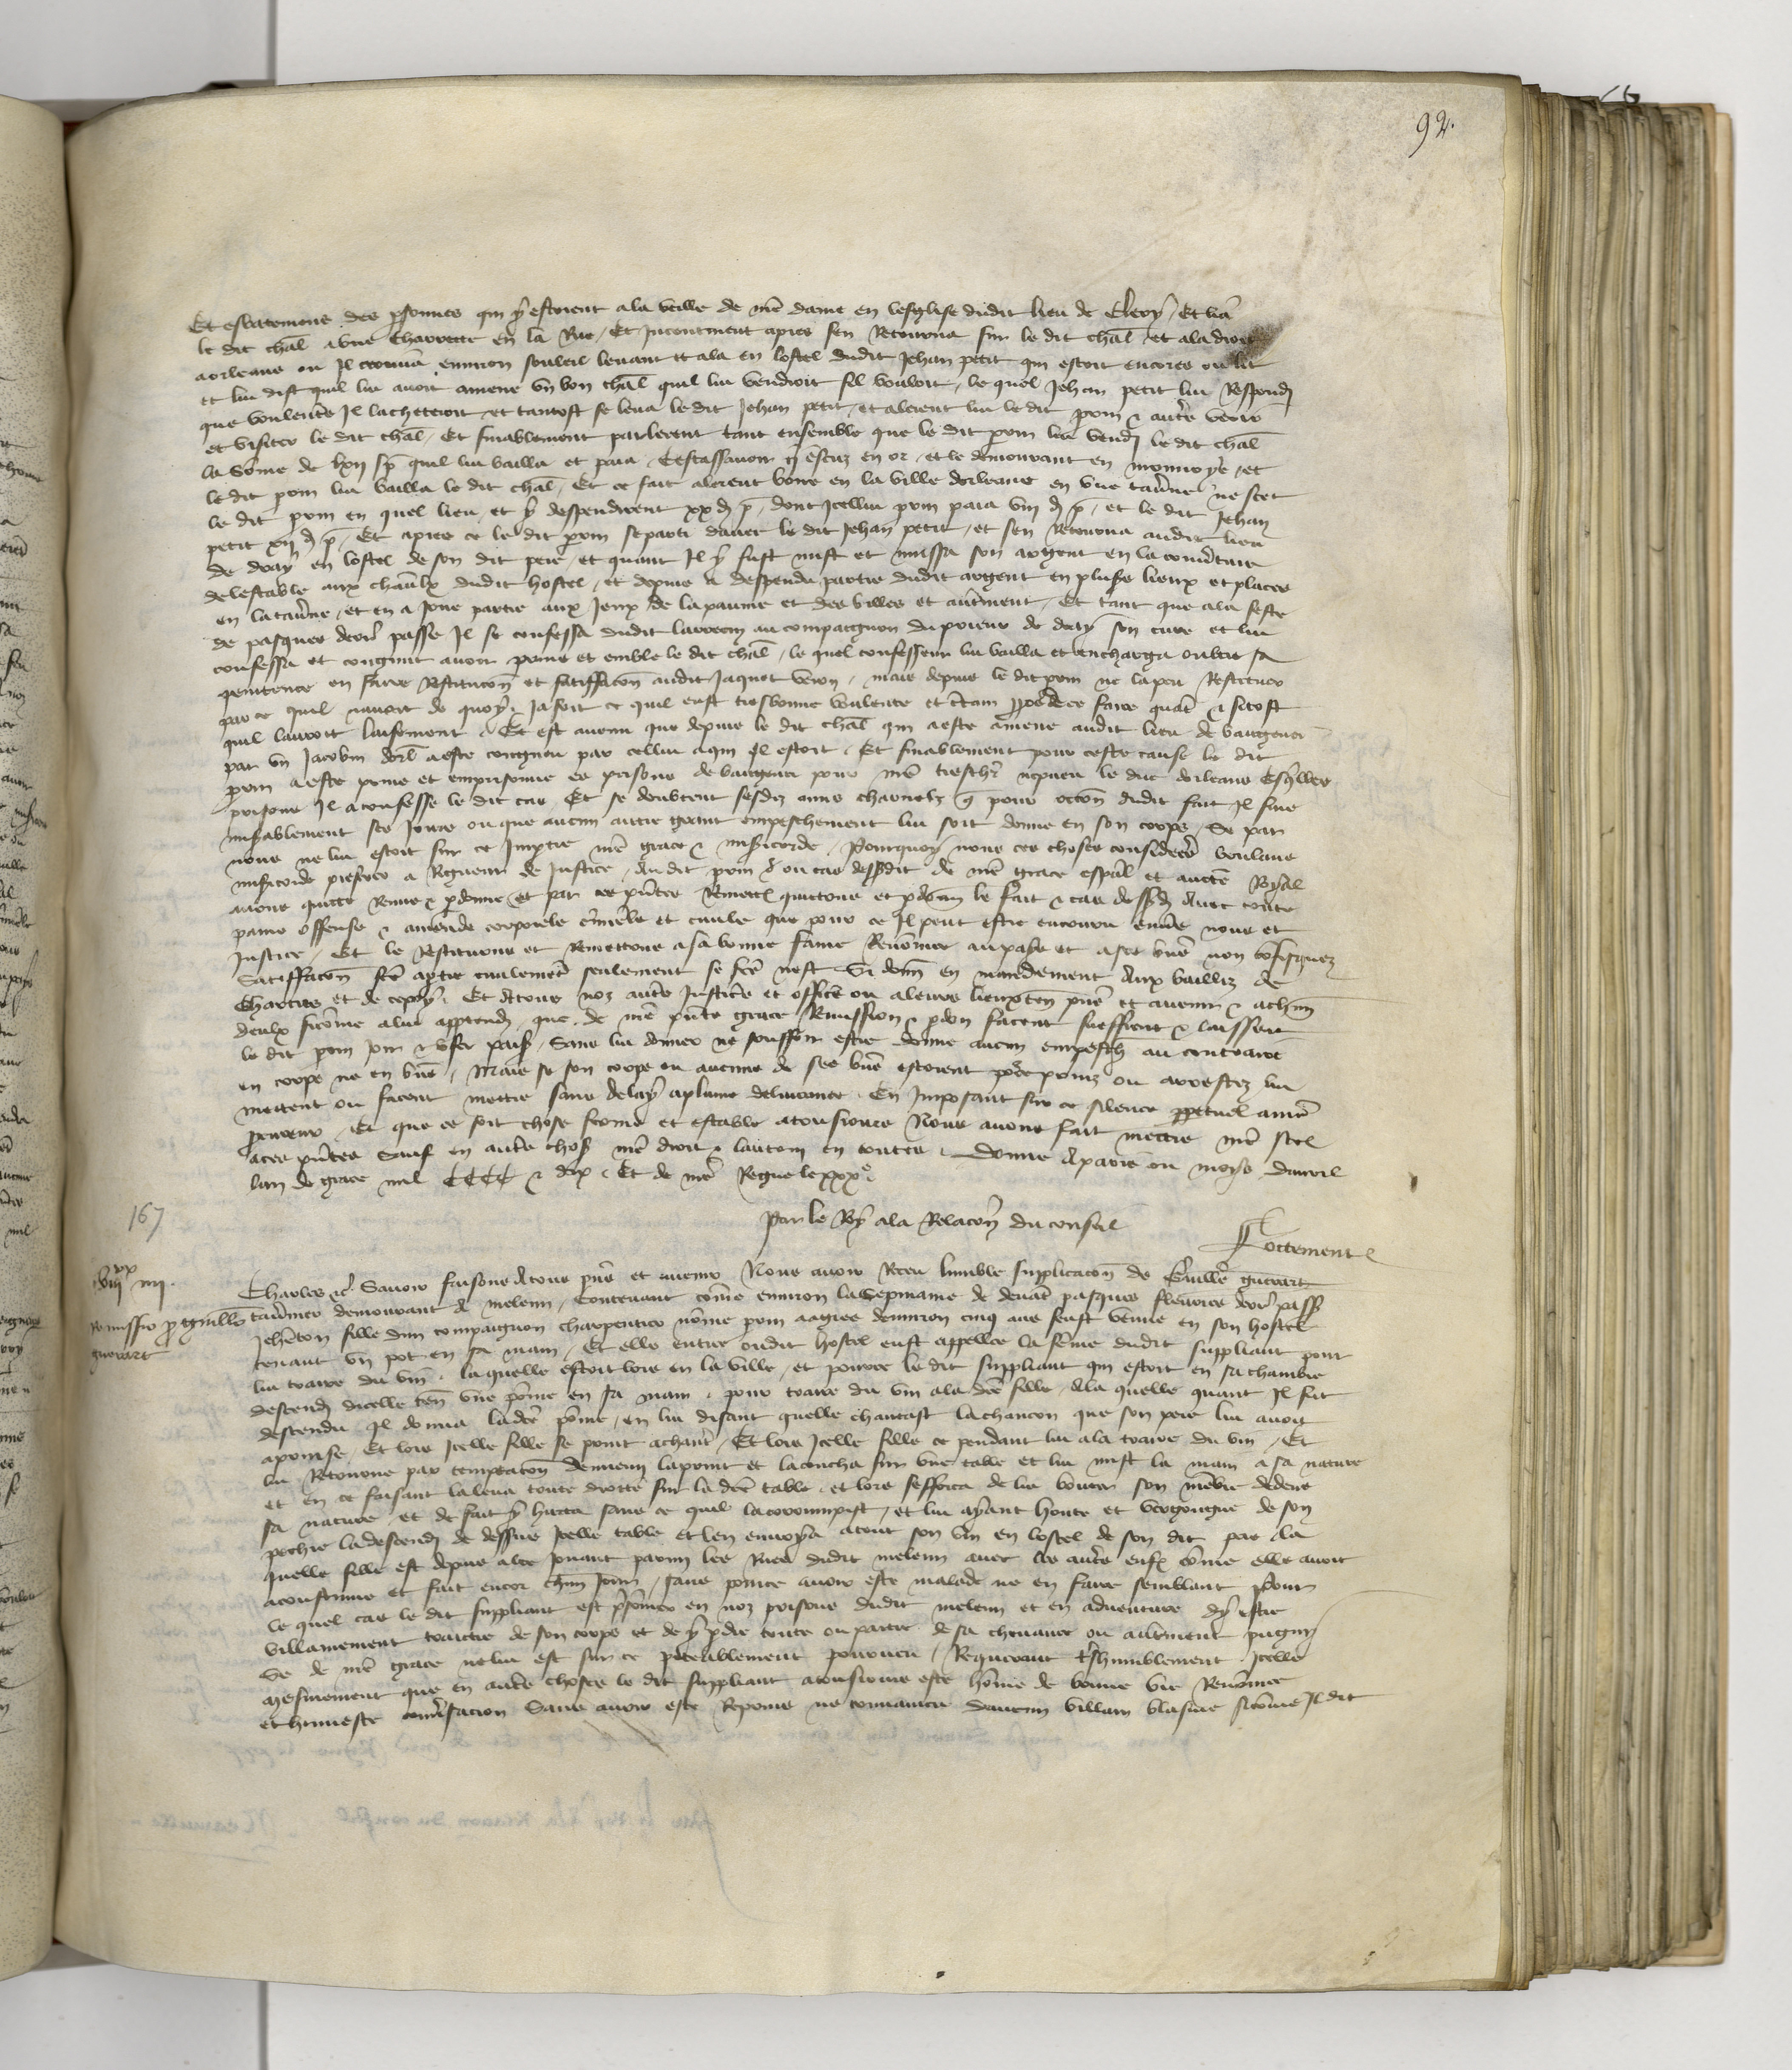 92.
Et esbatemens des psonnes qui y estoient a la veille de nre dame en leglise dudit lieu de Clery / Et lia
le dit chal a une charrette en la Rue / Et Incontinent apres sen Retourna sur le dit chal et ala droit
a orleans ou Il trouva environ souleil levant et ala en lostel dudit Jehan petit qui estoit encores ou lit
et lui dist quil lui avoit amene un bon chal quil lui vendroit sil vouloit / le quel Jehan petit lui Respondi
que voulentes Il lacheteroit et tantost se leva le dit Jehan petit / et alerent lui le dit pom & autres veoir
et visiter le dit chal / Et finablement parlerent tant ensemble que le dit pom lui vendi le dit chal
la Some de lxii s p quil lui bailla et paia / Cestassavoir escuz en or / et le demourant en monnoye / et
le dit pom lui bailla le dit chal / Et ce fait alerent boire en la ville dorleans en une taverne ne scet
le dit pom en quel lieu / et y despendirent xx d p / dont Icellui pom paia viii d p / et le dit Jehan
petit xii d p / Et apres ce le dit pom se parti davec le dit Jehan petit / et sen Retourna audit lieu
de en lostel de son dit pere / et quant Il y fust mist et mussa son argent en la couverture
de lestable aux chevaulx dudit hostel / et depuis a despendu partie dudit argent en plusrs lieux et places
en la taverne / et en a Joue partie aux Jeux de la paume et des billes et autrement / Et tant que a la feste
de pasques derr passe Il se confessa dudit larrecin au compaignon du prieur de son cure et lui
confessa et congnut avoir prins et emble le dit chal / le quel confesseur lui bailla et encharga oultre sa
penitence en faire Restitucon et satiffacon audit Jaquet / mais depuis le dit pom ne la peu Restituer
par ce quil navoit de quoy / Ja soit ce quil eust tresbonne voulente et de ce faire quant & si tost
quil lauroit / Et est avenu que depuis le dit chal qui a este amene audit lieu de baugenci
par un Jacobin a este congneu par cellui a qui Il estoit / Et finablement pour ceste cause le dit
pom a este prins et emprisonne es prisons de baugenci pour nre treschr nepveu le duc dorleans Esquelles
prisons Il a confesse le dit cas / Et se doubtent sesdiz amis charnelz q pour occon dudit fait Il fine
misablement ses Jours ou que aucun autre grant empeschement lui soit donne en son corps / Se par
nous ne lui estoit sur ce Imptie nre grace & misericorde / Pourquoy nous ces choses considerees voulans
misericorde preferer a Rigueur de Justice / Au dit pom ou cas dessusdit de nre grace espal et auctte Royal
avons quitte Remis & pdonne et par ces pntes Remett quittons et pdonn le fait & cas dessusd avec toute
paine offense & amende corporele crimele et civile que pour ce Il peut estre encouru envers nous et
Justice / Et le Restituons et Remettons a sa bonne fame Renomee au pays et a ses bns non confisquez
Satiffacon fte a ptie civilement seulement se fte nest / Si donn en mandement aux bailliz de
Chartres et de / Et a tous noz autrs Justicrs et officrs ou a leurs lieuxten pns et avenir & a chun
deulx si come a lui appartendra que de nre pnte grace Remission & pdon facent sueffrent & laissent
le dit pom Joir & user paisiblemt / Sans lui donner ne souffrir estre donne aucun empeschemt au contraire
en corps ne en bns / Mais se son corps ou aucuns de ses bns estoient prins ou arrestez lui
mettent ou facent mettre sans delay a plaine delivrance / En Imposant sur ce silence ppetuel a nre
procureur / Et que ce soit chose ferme et estable a tousiours Nous avons fait mettre nre scel
a ces pntes Sauf en autrs choses nre droit & lautruy en toutes / Donne A paris ou moys davril
lan de grace mil CCCC & dix / Et de nre Regne le xxxe
Par le Roy a la Relacon du conseil
167
Charles &c Savoir faisons A tous pns et avenir Nous avoir Receu lumble supplicacon de Guille guerart
Remissio p Guillo
guerart
tavernier demourant A meleun / Contenant come environ la Sepmaine de devant pasques fleuries derr passe
Jehneton fille dun compaignon charpentier nome pom aagiee denviron cinq ans feust venue en son hostel
tenant un pot en sa main / Et elle entree oudit hostel eust appellee la feme dudit suppliant pour
lui traire du vin / la quelle estoit lors en la ville / et pource le dit suppliant qui estoit en sa chambre
descendi dicelle ten une pome en sa main / pour traire du vin a la dte fille / A la quelle quant Il fut
descendu Il donna ladte pome / en lui disant quelle chantast la chancon que son pere lui avoit
aprinse / Et lors Icelle fille se print a chanter / Et lors Icelle fille ce pendant lui ala traire du vin / Et
lui Retourne par temptacon dennemi la print et la coucha sur une table et lui mist la main a sa nature
et en ce faisant la leva toute droitte sur la dte table / et lors sefforca de lui bouter son membre dedens
sa nature et de fait y hurta sans ce quil la corrompist / et lui ayant honte et vergongne de son
pechie la descendi de dessus Icelle table et len envoya atout son vin en lostel de son dit pere / la
quelle fille est depuis alee Jouant parmi les Rues dudit meleun avec les autrs enfs come elle avoit
acoustume et fait encor chun Jour / sans pource avoir este malade ne en faire semblant / Pour
le quel cas le dit suppliant est prisonnier en noz prisons dudit meleun et en adventure dy estre
villainement traictie de son corps et de y pdre toute ou partie de sa chevance ou autrement pugny
Se de nre grace ne lui est sur ce piteablement pourveu / Requerant treshumblement Icelle
Mesmement que en autrs choses le dit suppliant a tousiours este home de bonne vie Renomee
et honneste conversacion Sans avoir este Reprins ne convaincu daucun villain blasme si come Il dit